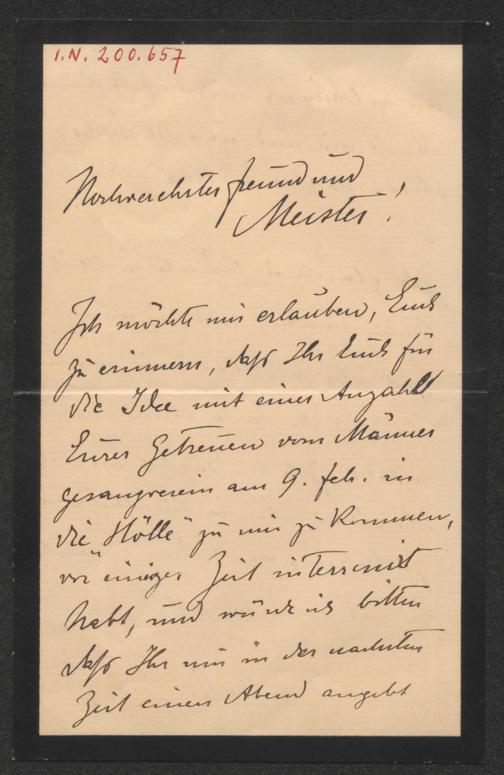 I.N. 200.657
Hochverehrter Freund und
Meister!
Ich möchte mir erlauben, Euch
zu erinnern, daß Ihr Euch für
die Idee mit einer Anzahl
Eurer Getreuen vom Männer
gesangverein am 9. Feb. in
die „Hölle“ zu mir zu kommen,
vor einiger Zeit interressirt
habt, und würde ich bitten
daß Ihr mir in der nächsten
Zeit einen Abend angebt